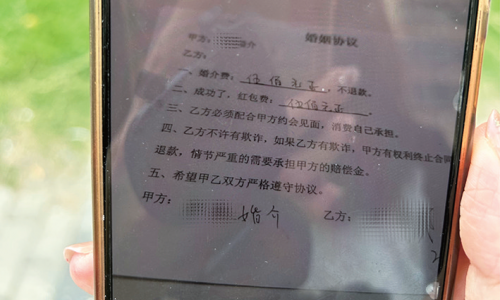 婚姻协议
甲方：婚介
乙方：
一、婚介费：伍佰元正，不退款。
二、成功了，红包费：伍佰元正。
三、乙方必须配合甲方约会见面，消费自己承担。
四、乙方不许有欺诈，如果乙方有欺诈，甲方有权利终止合同
退款，情节严重的需要承担甲方的赔偿金。
五、希望甲乙双方严格遵守协议。
甲方： 婚介 乙方：